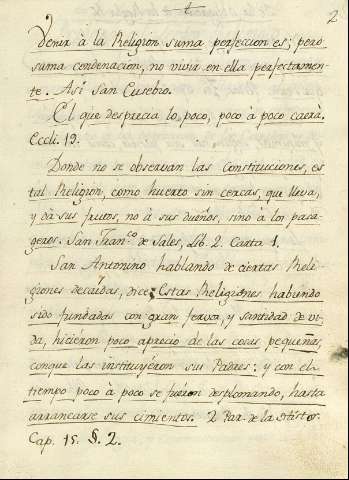 2
Venir à la Religion suma perfeccion es; pero
suma condenacion, no vivir en ella perfectamen-
te. Asi San Eusebio.
El que desprecia lo poco, poco à poco caerà.
Eccli. 19.
Donde no se observan las Constituciones, es
tal Religion, como huerto sin cercas, que lleva,
y dà sus frutos, no à sus dueños, sino à los pasa-
geros. San Fran.co de Sales, Lib. 2. Carta 1.
San Antonino hablando de ciertas Reli-
giones decaìdas, dice: Estas Religiones habiendo
sido fundadas con gran fervor, y santidad de vi-
da, hicièron poco aprecio de las cosas pequeñas,
conque las instituyèron sus Padres: y con el
tiempo poco à poco se fuèron desplomando, hasta
arrancarse sus cimientos. 2 Par. de la Histor.
Cap. 15. §. 2.